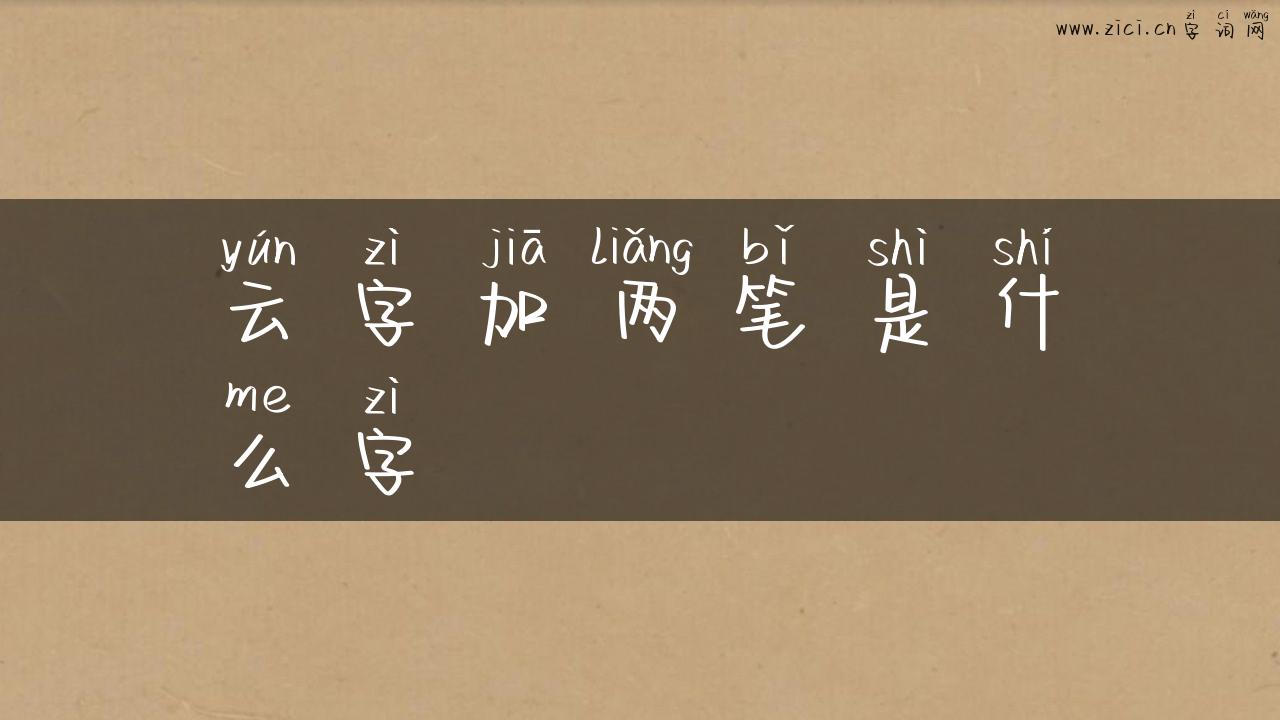 zì cí wǎng
www.zici.cn 字词网
yún zì jiā liǎng bǐ shì shí
云字加两笔是什
me zì
么字